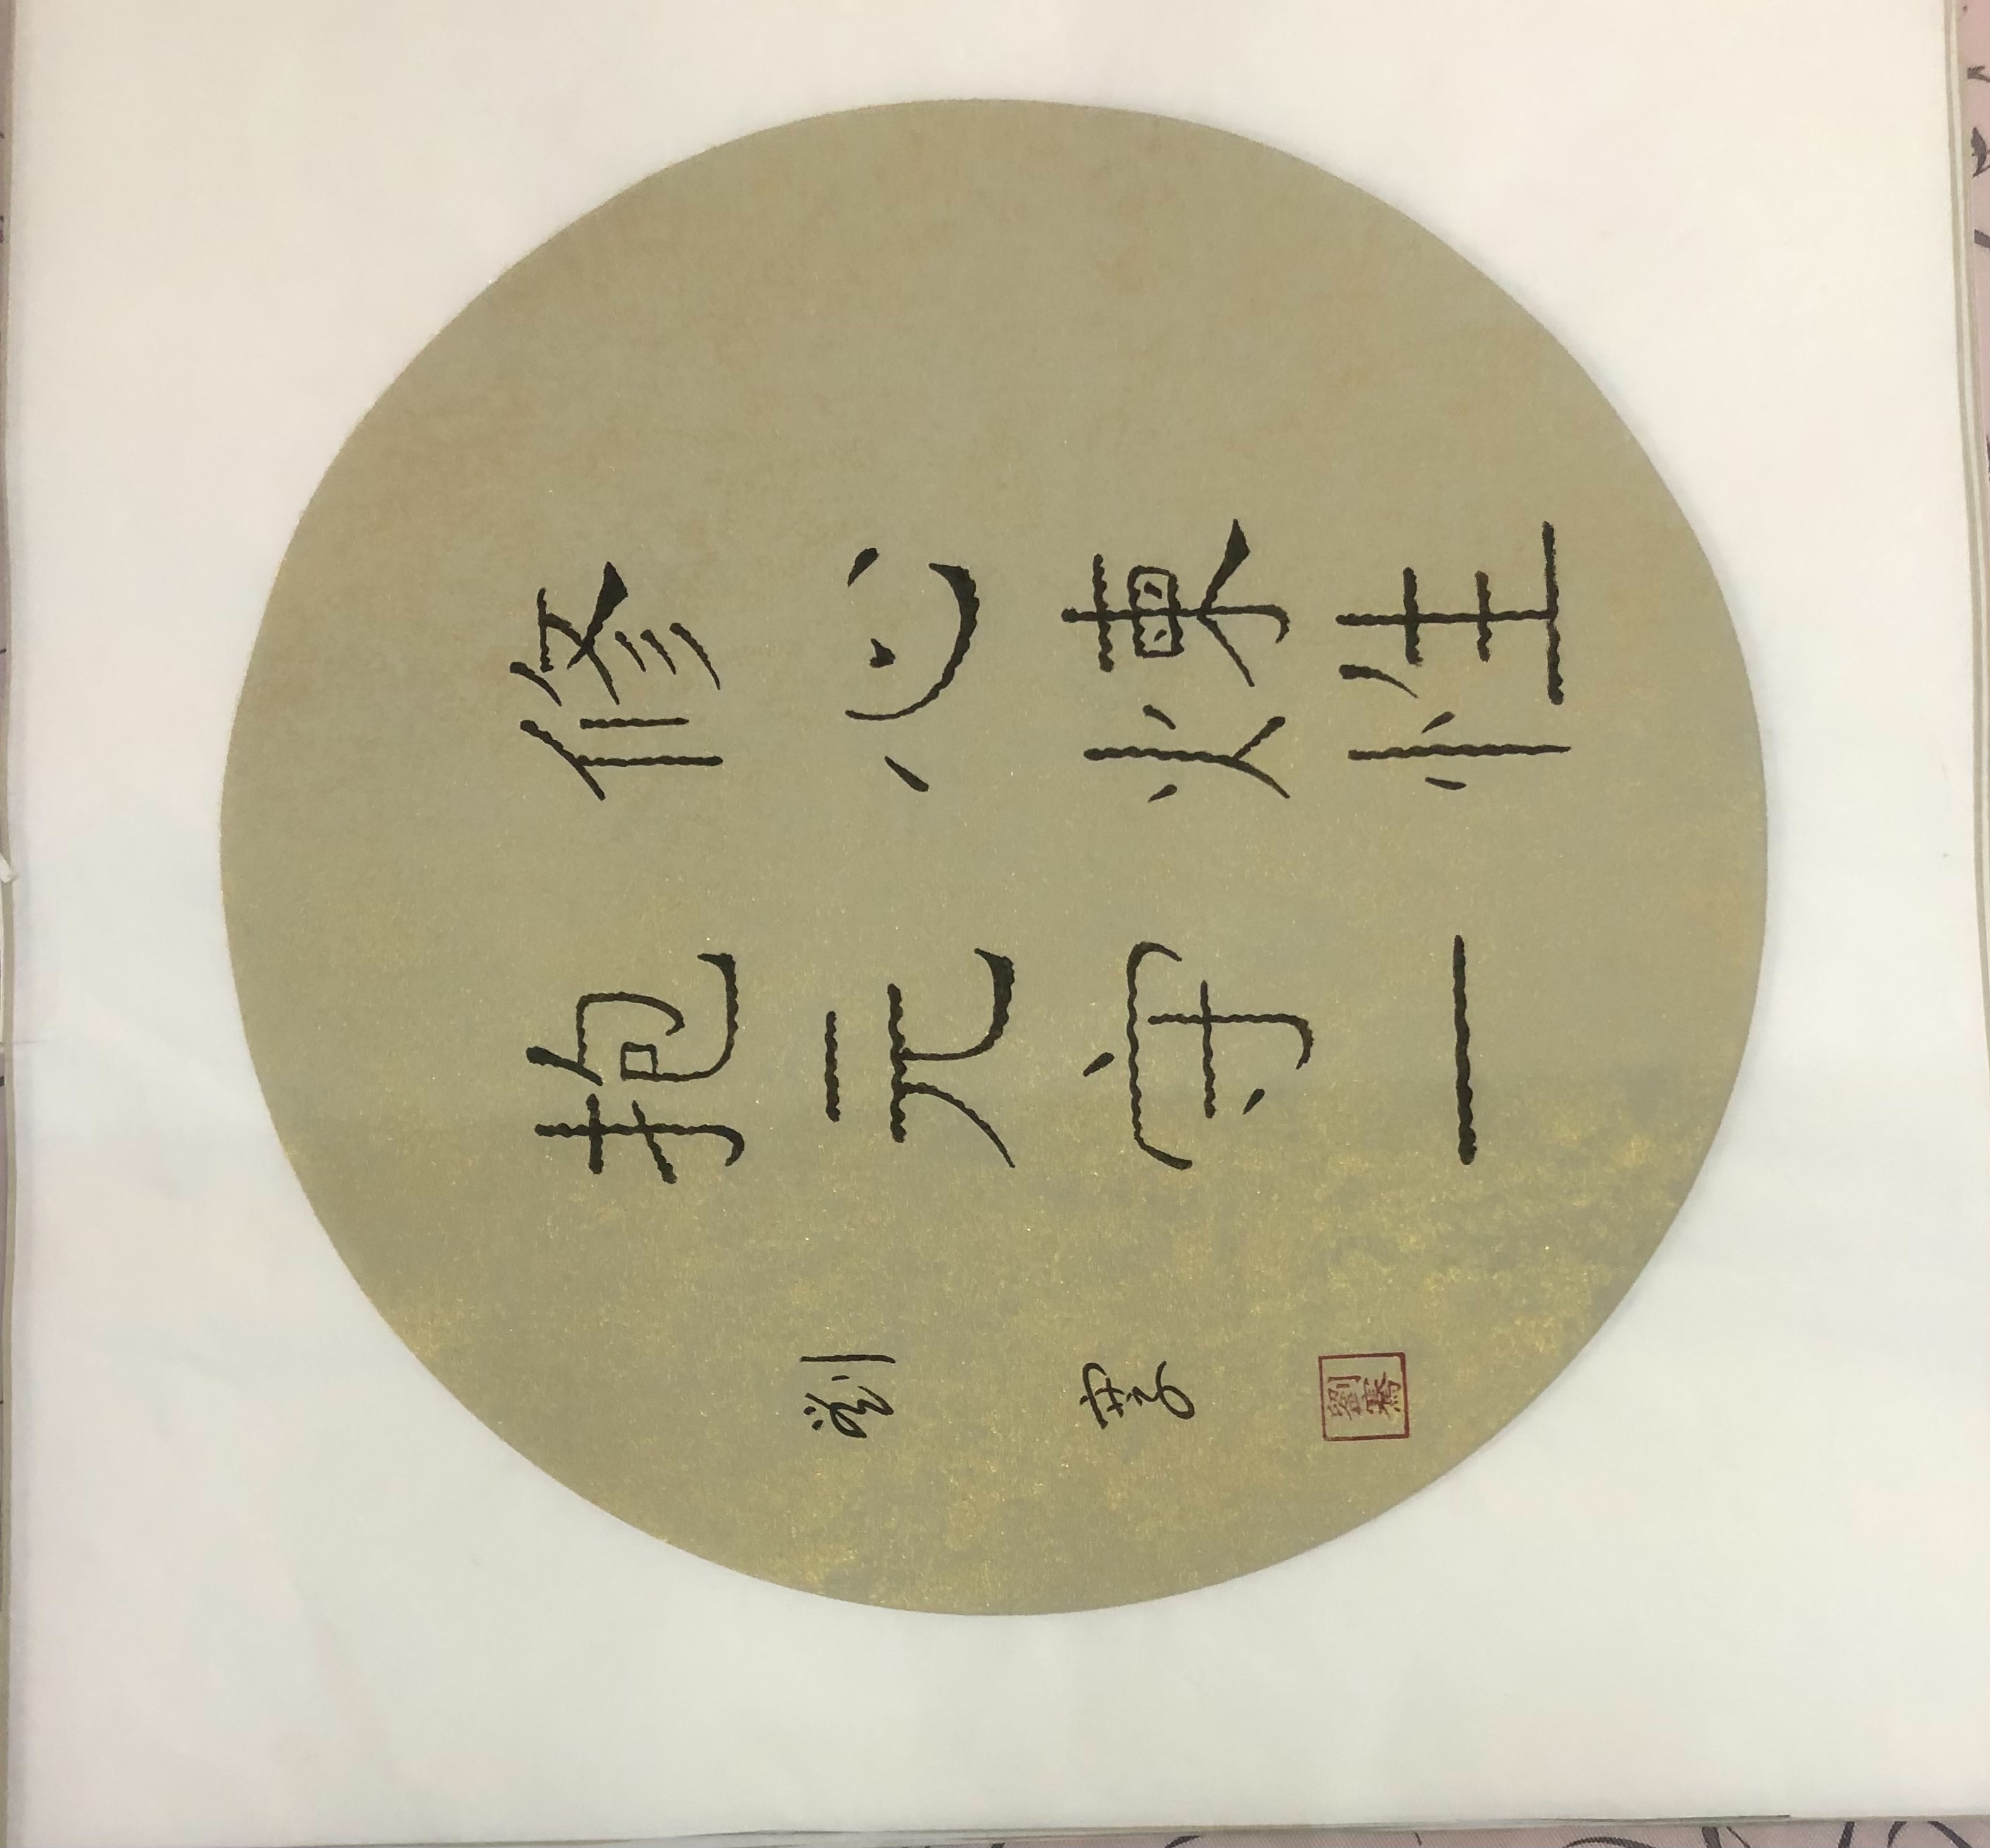 修心煉性
抱元守一
劉騫
劉騫